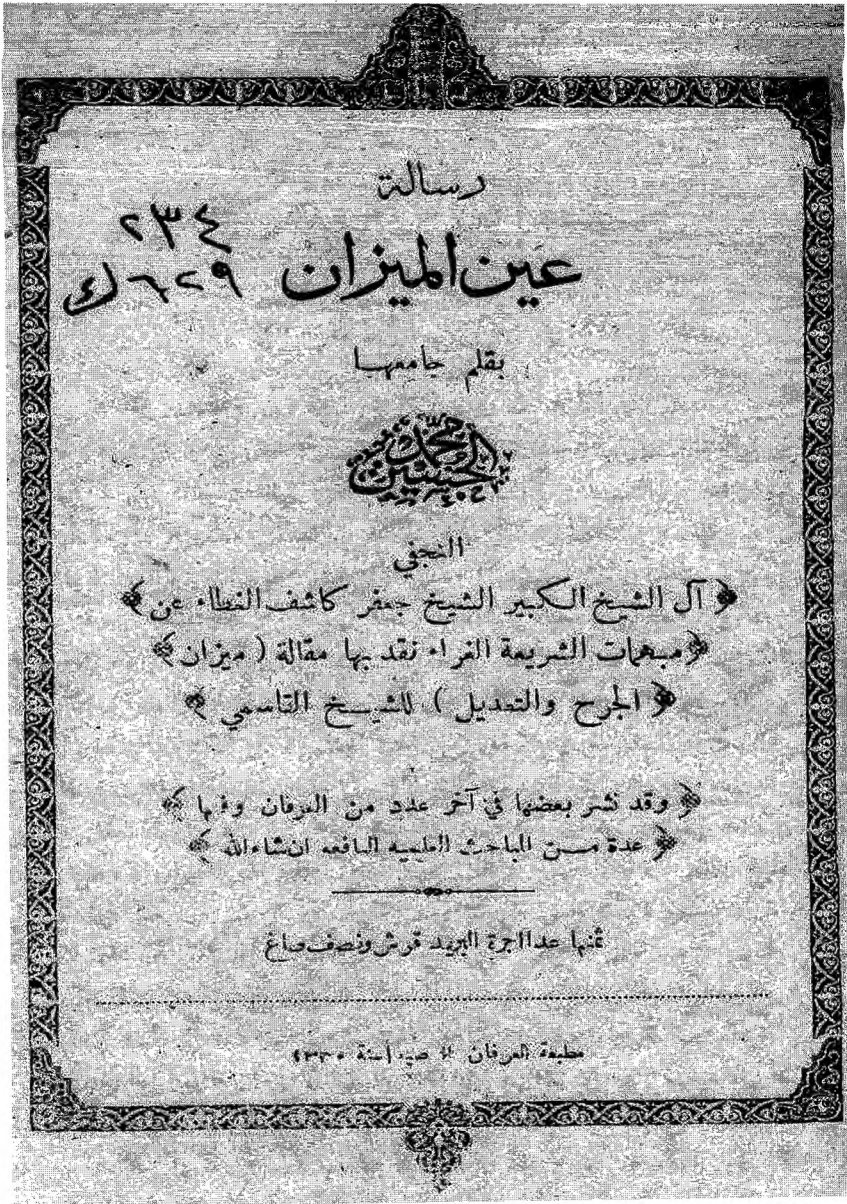 رسالة
٢٣٤
عين الميزان
٦٢٩ ك
بقلم جامعها
محمد الحسين
النجفي
﴿ آل الشيخ الكبير الشيخ جعفر كاشف الغطاء عن ﴾
﴿ مبهمات الشريعة الغراء نقد بها مقالة ( ميزان ﴾
﴿ الجرح والتعديل ) للشيخ القاسمي ﴾
﴿ وقد نشر بعضها في آخر عدد من العرفان وفيها ﴾
﴿ عدة من المباحث العلميه النافعه ان شاء الله ﴾
ثمنها عدا اجرة البريد قرش ونصف صاغ
مطبعة العرفان صيدا سنة